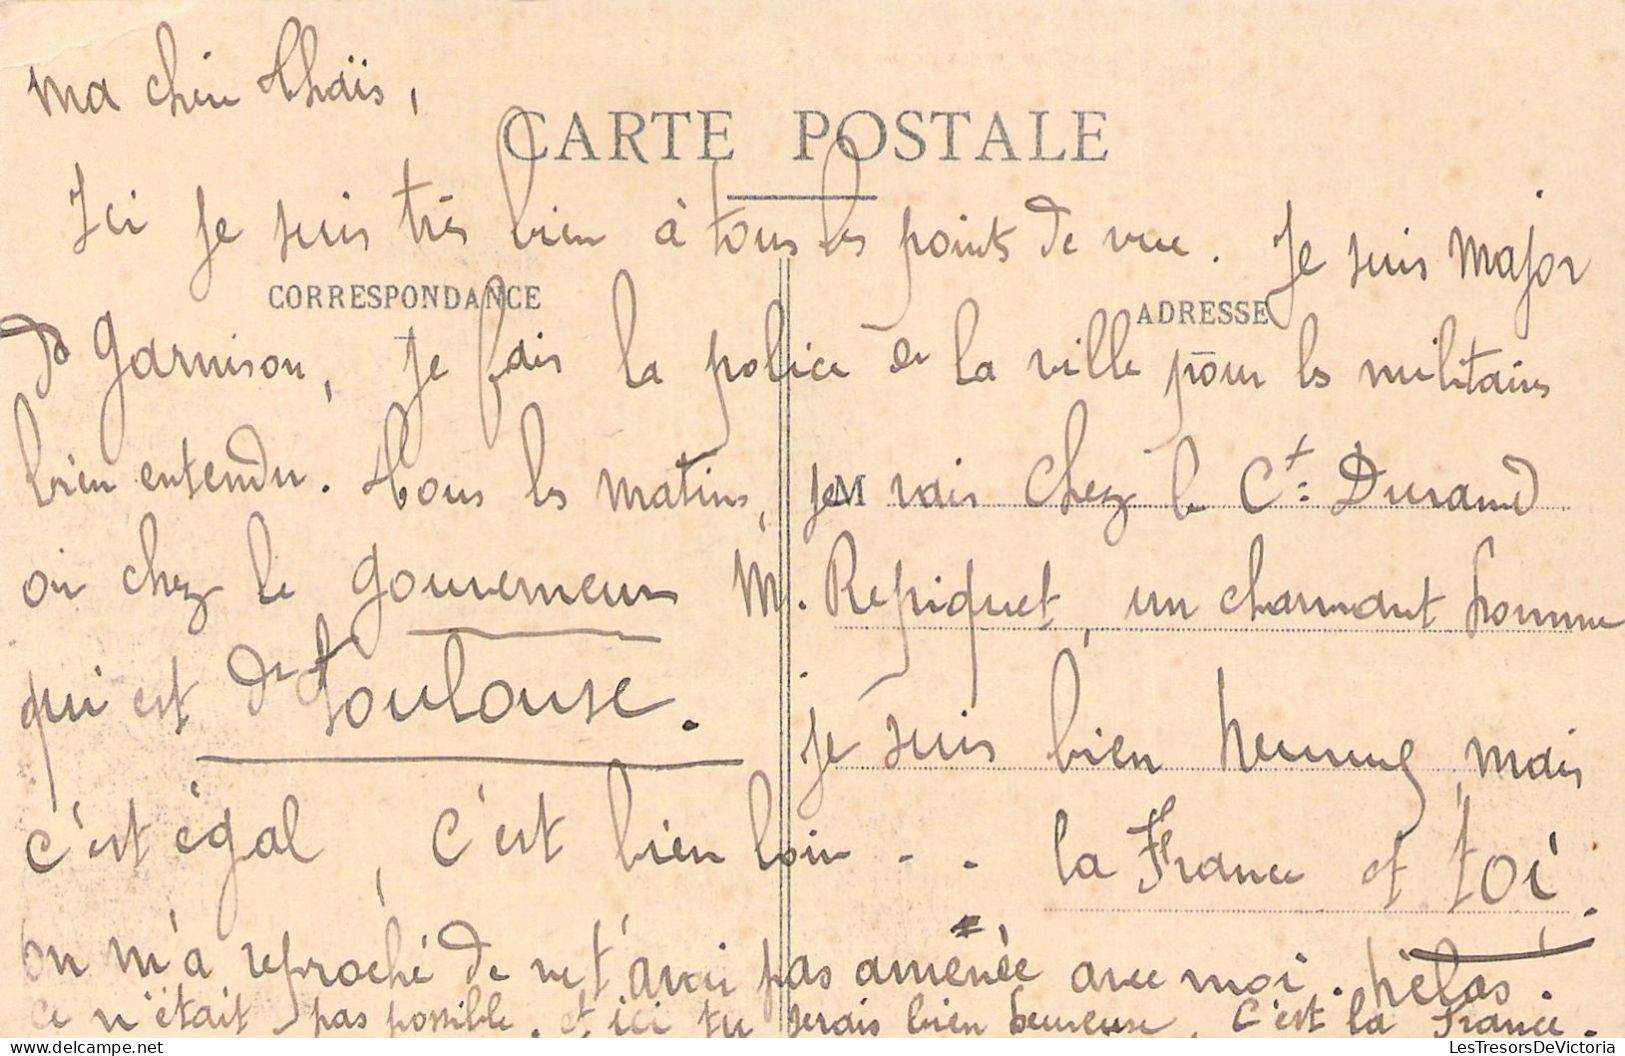 ma chère Thaïs,
CARTE POSTALE
Ici je suis très bien à tous les points de vue. Je suis Major
CORRESPONDANCE
ADRESSE
de Garnison, je fais la police de la ville pour les militaires
bien entendu. Tous les matins, je vais chez le Ct: Durand
M
ou chez le gouverneur M. Repiquet, un charmant homme
qui est de Toulouse. je suis bien heureux, mais
c'est égal, c'est bien loin - - la France et toi.
on m'a reproché de ne t'avoir pas amenée avec moi. hélas.
ce n'était pas possible. et ici tu serais bien heureuse, c'est la France.
LesTresorsDeVictoria
Delcampe.net